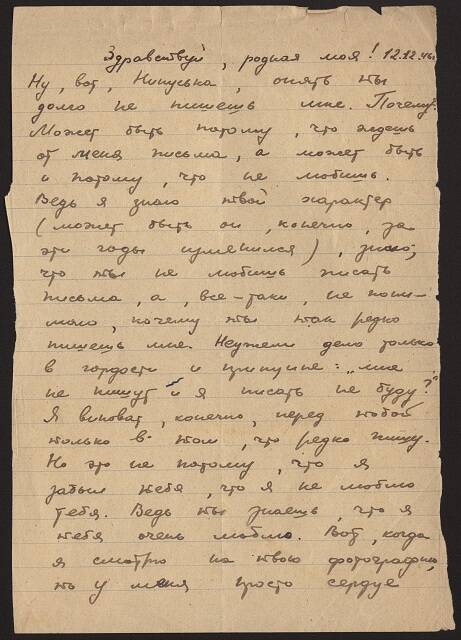 Здравствуй, родная моя! 12.12.46г
Ну, вот, Нинуська, опять ты
долго не пишешь мне. Почему?
Может быть потому, что ждешь
от меня письма, а может быть
и потому, что не любишь.
Ведь я знаю твой характер
(может быть он, конечно, за
эти годы изменился), знаю,
что ты не любишь писать
письма, а, все-таки, не пони-
маю, почему ты так редко
пишешь мне. Неужели дело только
в гордости и принципе: „мне
не пишут и я писать не буду?"
Я виноват, конечно, перед тобой
только в том, что редко пишу.
Но это не потому, что я
забыл тебя, что я не люблю
тебя. Ведь ты знаешь, что я
тебя очень люблю. Вот, когда
я смотрю на твою фотографию,
то у меня просто сердце